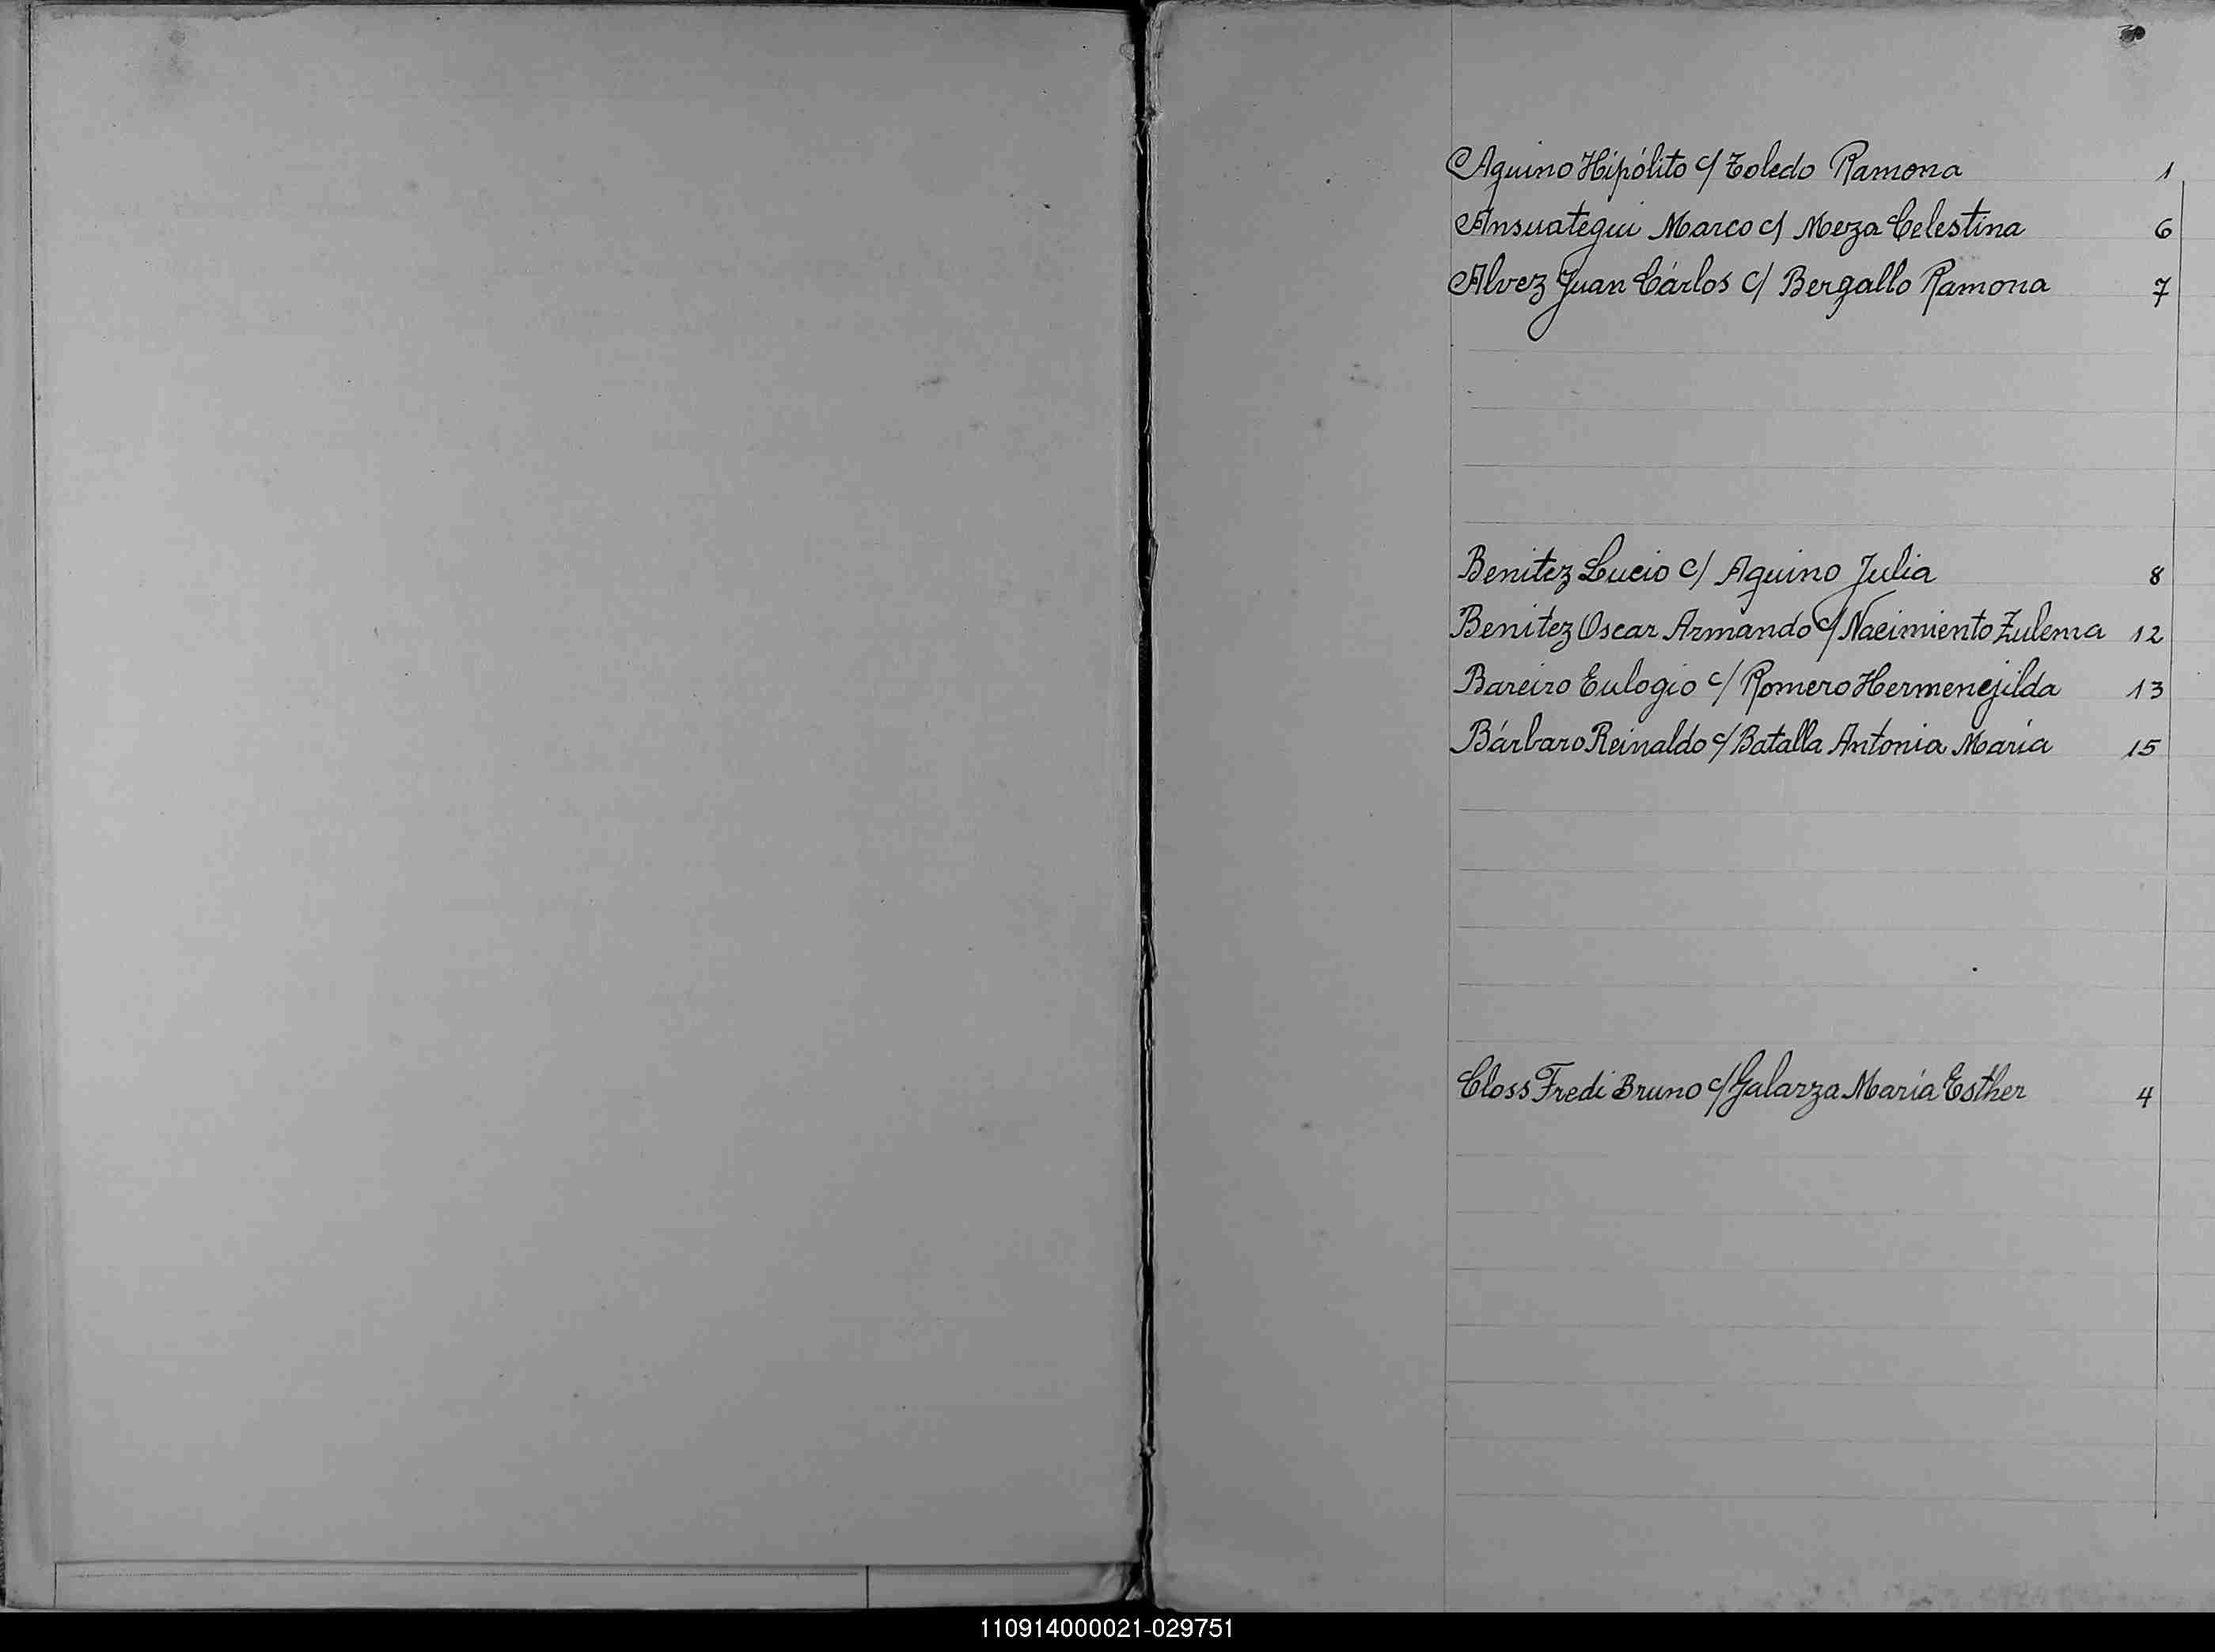 Aquino Hipólito c/ Toledo Ramona 1
Ansuategui Marco c/ Meza Celestina 6
Alvez Juan Cárlos c/ Bergallo Ramona 7
Benitez Lucio c/ Aquino Julia 8
Benitez Oscar Armando c/ Nacimiento Zulema 12
Bareiro Eulogio c/ Romero Hermenejilda 13
Bárbaro Reinaldo c/ Batalla Antonia María 15
Closs Fredi Bruno c/ Galarza María Esther 4
110914000021-029751